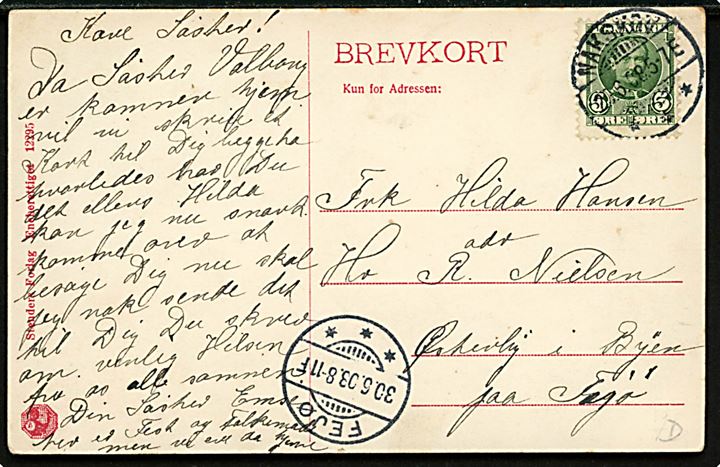 Kære Søster!
Da Søster Valborg
er kommen hjem
vil vi skrive et
Kort til Dig begge to
hvorledes har Du
det ellers Hilda
kan jeg nu snart
komme over at
besøge Dig nu skal
jeg nok sende det
til Dig Du skrev
om. venlig Hilsen
fra os alle sammen
Din Søster
her er Fest og
men vi
BREVKORT
Kun for Adressen:
Frk Hilda Hansen
adr
Hr R. Nielsen
Østerby i Byen
paa Fejø
NAKSKOV
5 ØRE 5
FEJØ
30.6.08.8-11F
Stenders Forlag Eneberettiget 12295
D